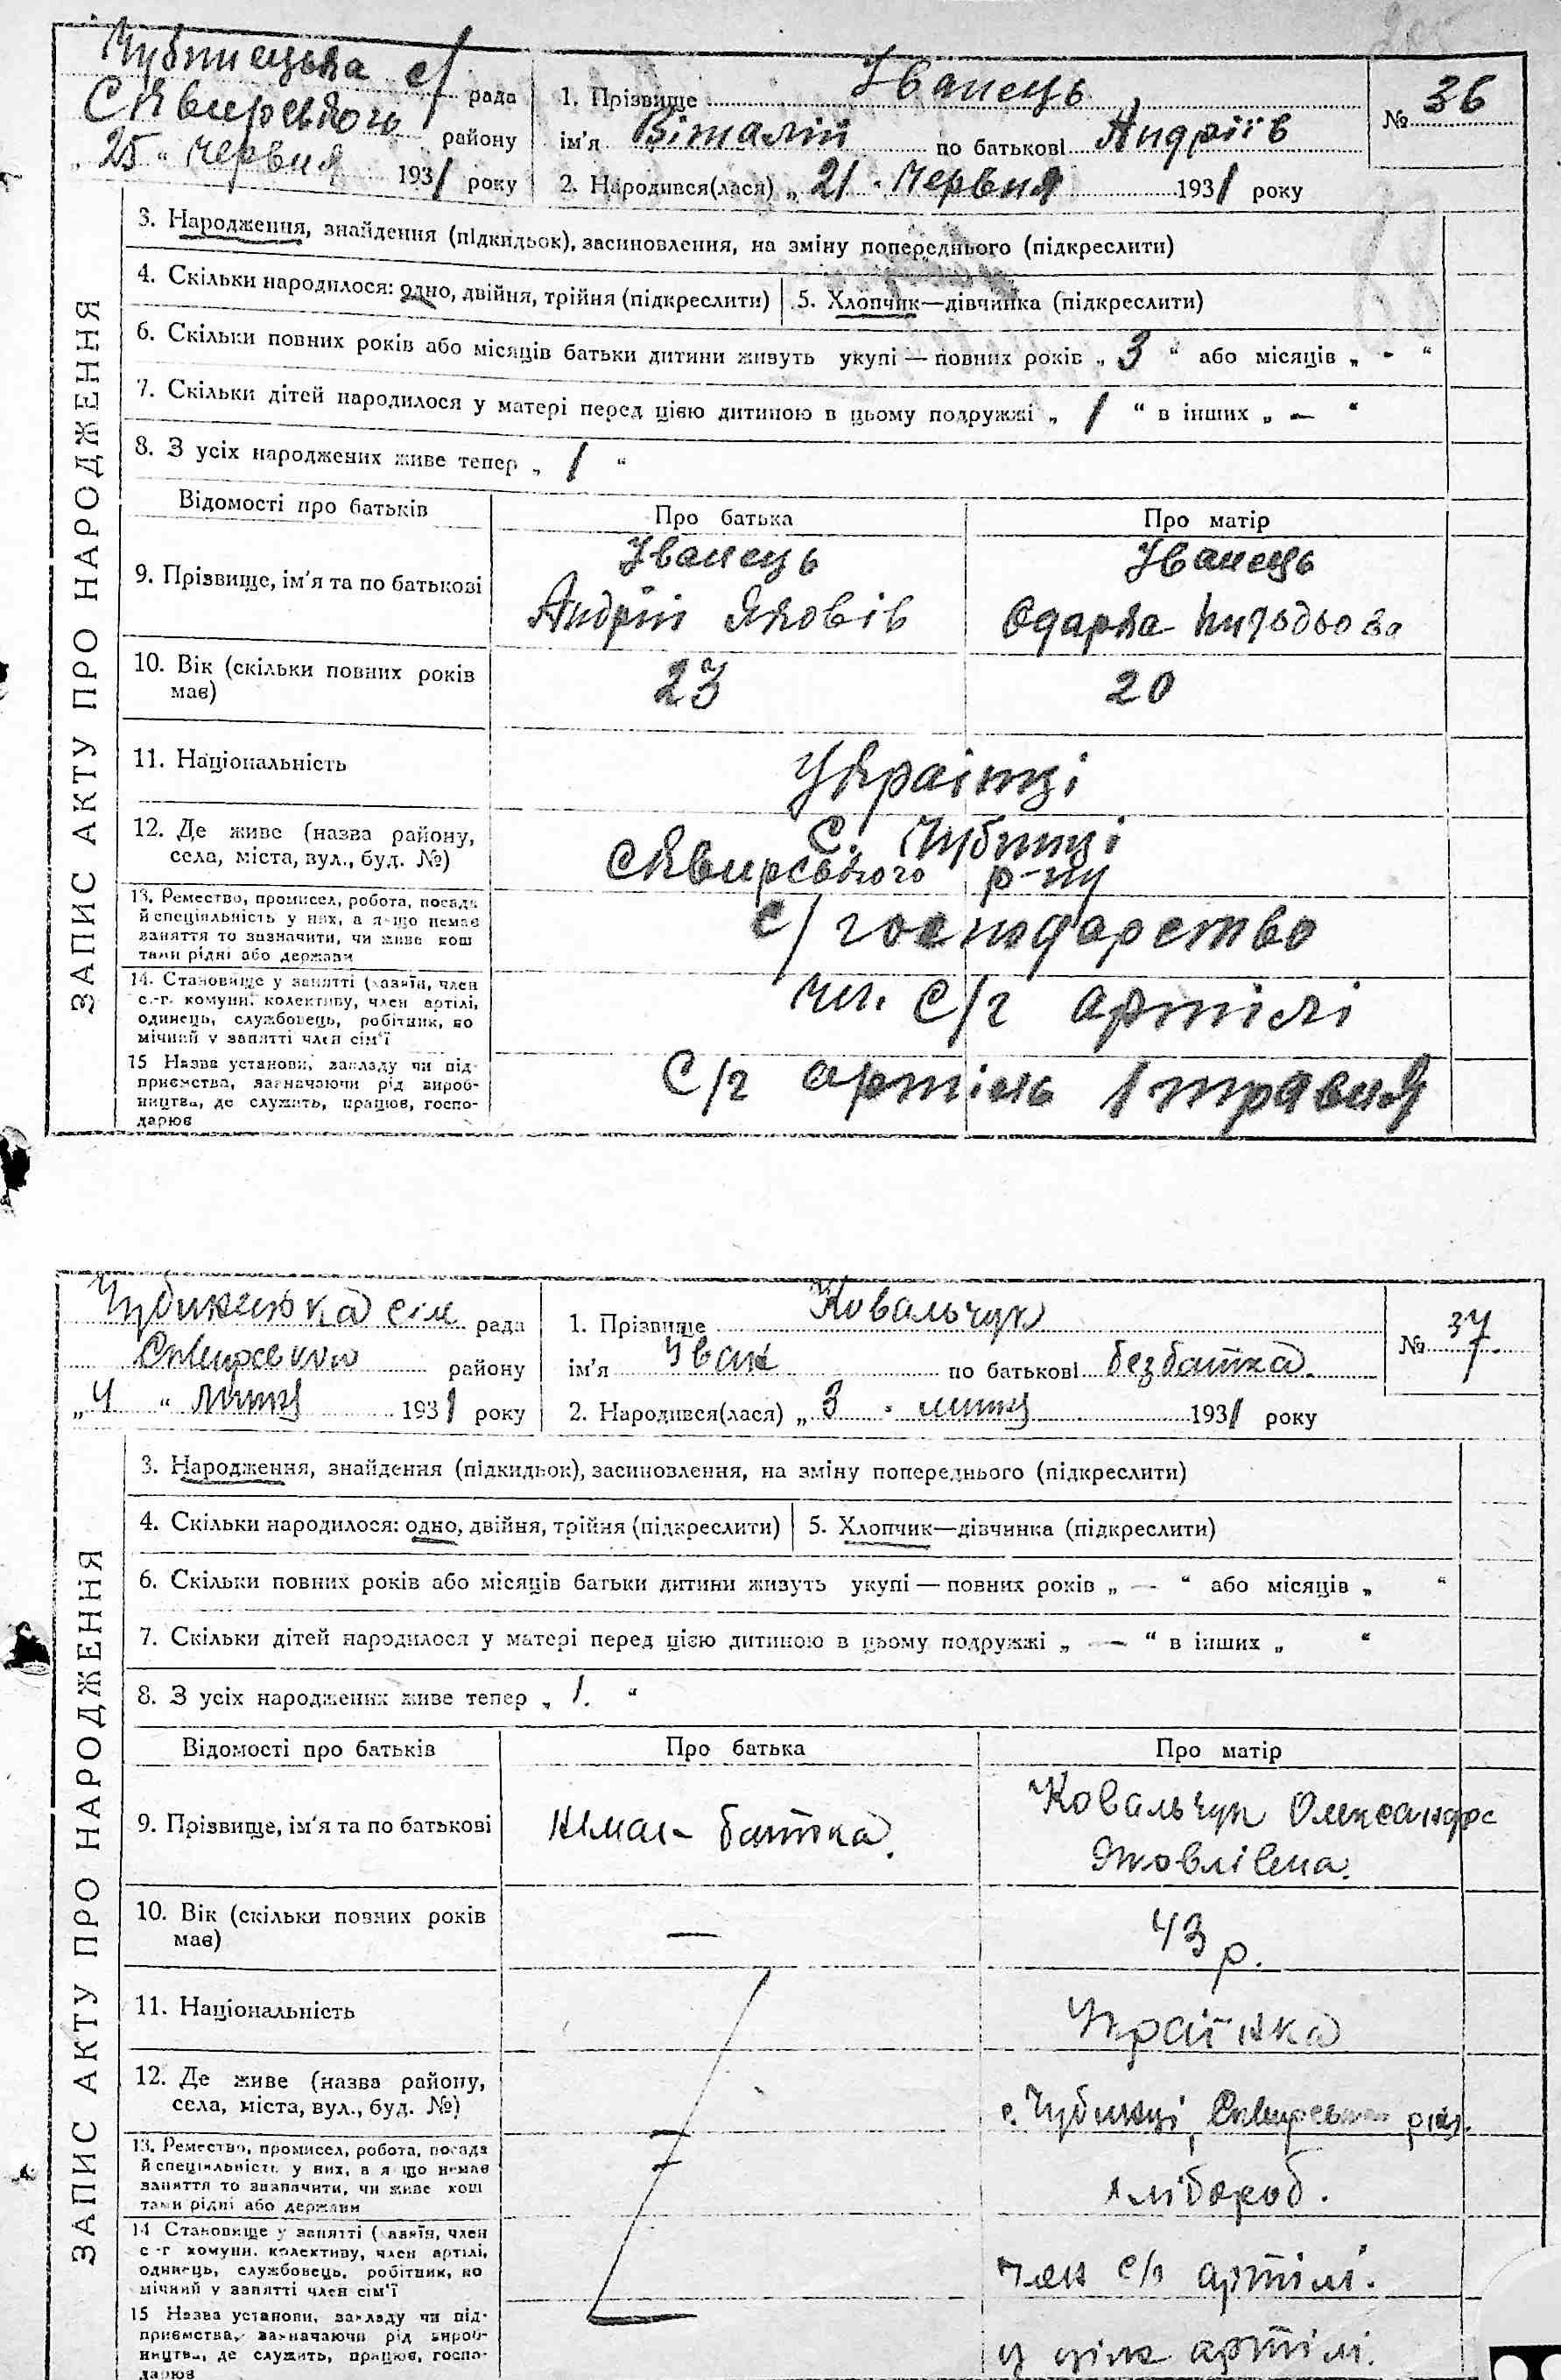 Чубинецька с/ рада
Сквирського району
„25“ червня 1931 року
1. Прізвище Іванець
ім'я Віталій по батькові Андріїв
2. Народився(лася) „21. червня 1931 року
№ 36
ЗАПИС АКТУ ПРО НАРОДЖЕННЯ
3. Народження, знайдення (підкидьок), засиновлення, на зміну попереднього (підкреслити)
4. Скільки народилося: одно, двійня, трійня (підкреслити)
5. Хлопчик—дівчинка (підкреслити)
6. Скільки повних років або місяців батьки дитини живуть укупі — повних років „ 3 “ або місяців „ - “
7. Скільки дітей народилося у матері перед цією дитиною в цьому подружжі „ 1 “ в інших „ — “
8. З усіх народжених живе тепер „ 1 “
Відомості про батьків
Про батька
Про матір
9. Прізвище, ім'я та по батькові
Іванець
Андрій Яковів
Іванець
Одарка
10. Вік (скільки повних років
має)
23
20
11. Національність
Українці
12. Де живе (назва району,
села, міста, вул., буд. №)
С. Чубинці
Сквирського р-ну
13. Ремество, промисел, робота, посада
й спеціяльність у них, а якщо немає
заняття то зазначити, чи живе кош
тами рідні або держави
с/господарство
14. Становище у занятті (хазяїн, член
с.-г. комуни. колективу, член артілі,
одинець, службовець, робітник, по
мічний у занятті член сім'ї
чл. с/г артілі
15 Назва установи, закладу чи під-
приємства, зазначаючи рід вироб-
ництва, де служить, працює, госпо-
дарює
С/г артіль 1 травня
Чубинецька сіл рада
Сквирського району
„4 “ липця 1931 року
1. Прізвище Ковальчук
ім'я Іван по батькові без батька.
2. Народився(лася) „3. липця 1931 року
№ 37.
ЗАПИС АКТУ ПРО НАРОДЖЕННЯ
3. Народження, знайдення (підкидьок), засиновлення, на зміну попереднього (підкреслити)
4. Скільки народилося: одно, двійня, трійня (підкреслити)
5. Хлопчик—дівчинка (підкреслити)
6. Скільки повних років або місяців батьки дитини живуть укупі — повних років „ — “ або місяців „ “
7. Скільки дітей народилося у матері перед цією дитиною в цьому подружжі „ — “ в інших „ “
8. З усіх народжених живе тепер „ 1. “
Відомості про батьків
Про батька
Про матір
9. Прізвище, ім'я та по батькові
батька.
Ковальчук Олександра
Яковлівна.
10. Вік (скільки повних років
має)
—
43 р.
11. Національність
Українка
12. Де живе (назва району,
села, міста, вул., буд. №)
с. Чубинці, Сквирськ. рай.
13. Ремество, промисел, робота, посада
й спеціяльність у них, а якщо немає
заняття то зазначити, чи живе кош
тами рідні або держави
хлібороб.
14 Становище у занятті (хазяїн, член
с-г комуни. колективу, член артілі,
одинець, службовець, робітник, по
мічний у занятті член сім'ї
член с/г артілі.
15 Назва установи, закладу чи під-
приємства, зазначаючи рід вироб-
ництва, де служить, працює, госпо-
дарює
у артілі.